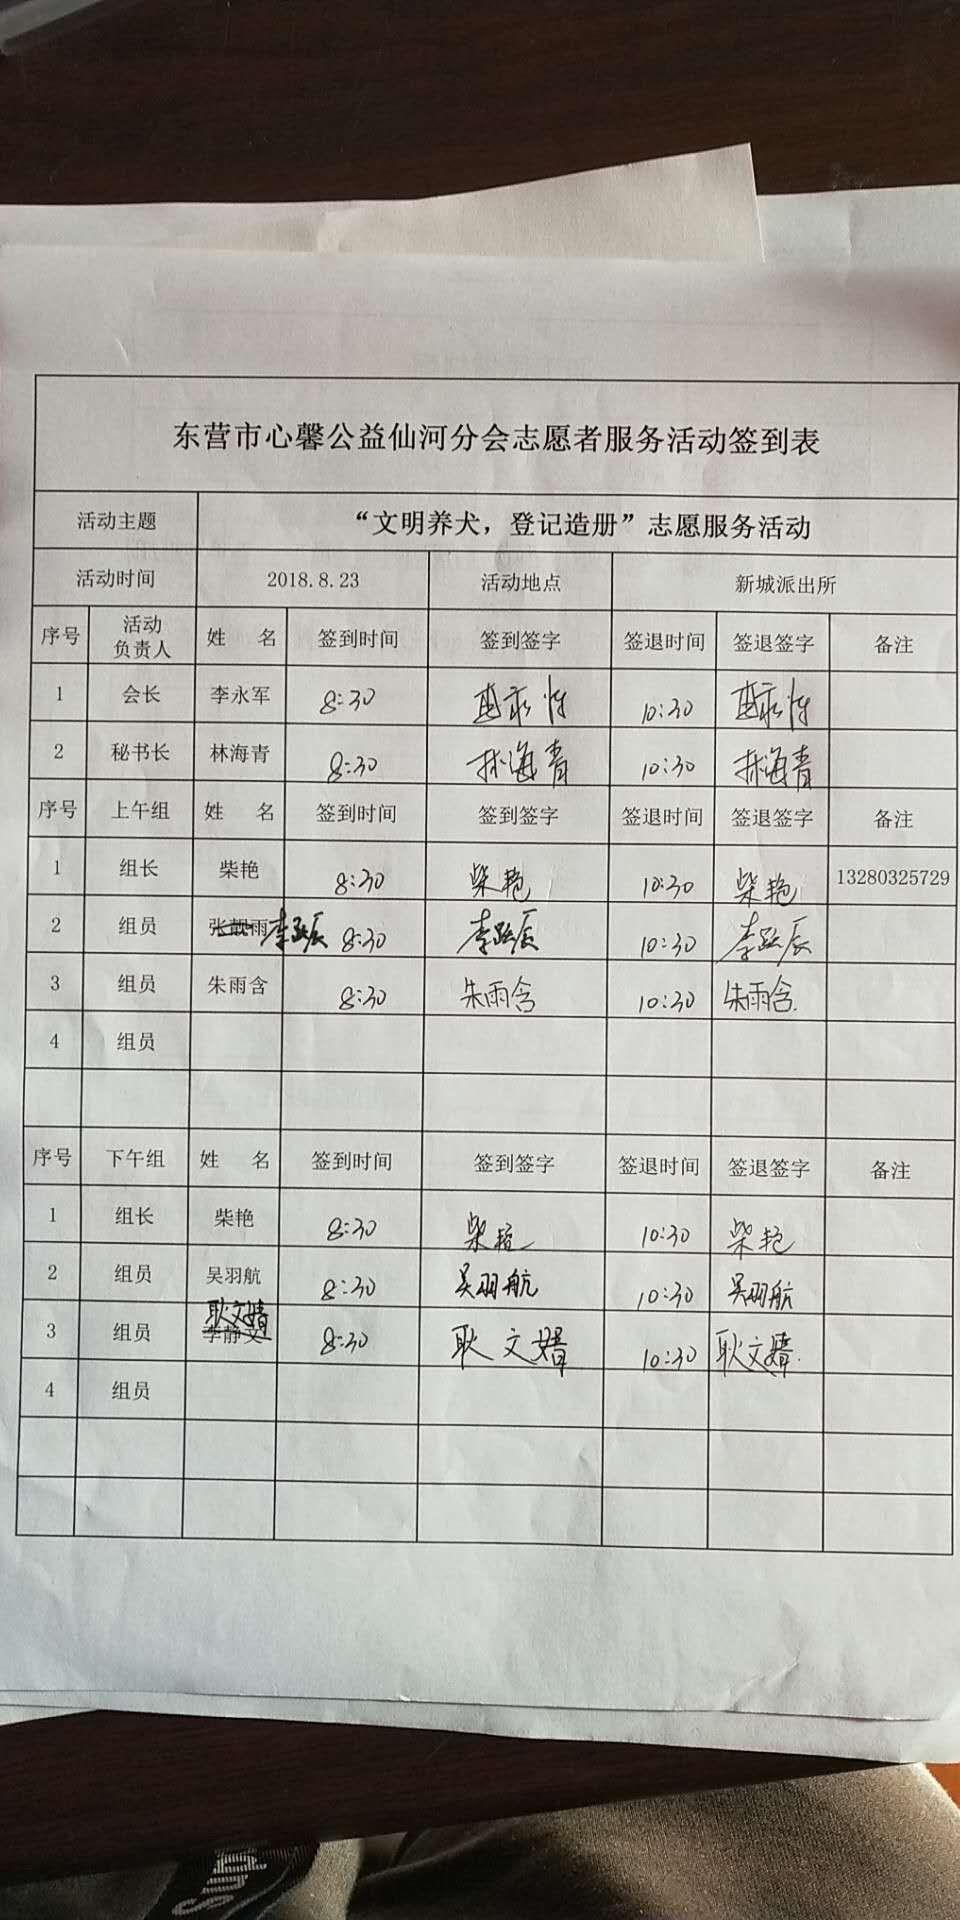 东营市心馨公益仙河分会志愿者服务活动签到表
活动主题 “文明养犬，登记造册”志愿服务活动
活动时间 2018.8.23 活动地点 新城派出所
序号 活动负责人 姓 名 签到时间 签到签字 签退时间 签退签字 备注
1 会长 李永军 8:30 10:30
2 秘书长 林海青 8:30 林海青 10:30 林海青
序号 上午组 姓 名 签到时间 签到签字 签退时间 签退签字 备注
1 组长 柴艳 8:30 柴艳 10:30 柴艳 13280325729
2 组员 张靓雨 李跃辰 8:30 李跃辰 10:30 李跃辰
3 组员 朱雨含 8:30 朱雨含 10:30 朱雨含
4 组员
序号 下午组 姓 名 签到时间 签到签字 签退时间 签退签字 备注
1 组长 柴艳 8:30 柴艳 10:30 柴艳
2 组员 吴羽航 8:30 吴羽航 10:30 吴羽航
3 组员 李静文 耿文婧 8:30 耿文婧 10:30 耿文婧
4 组员